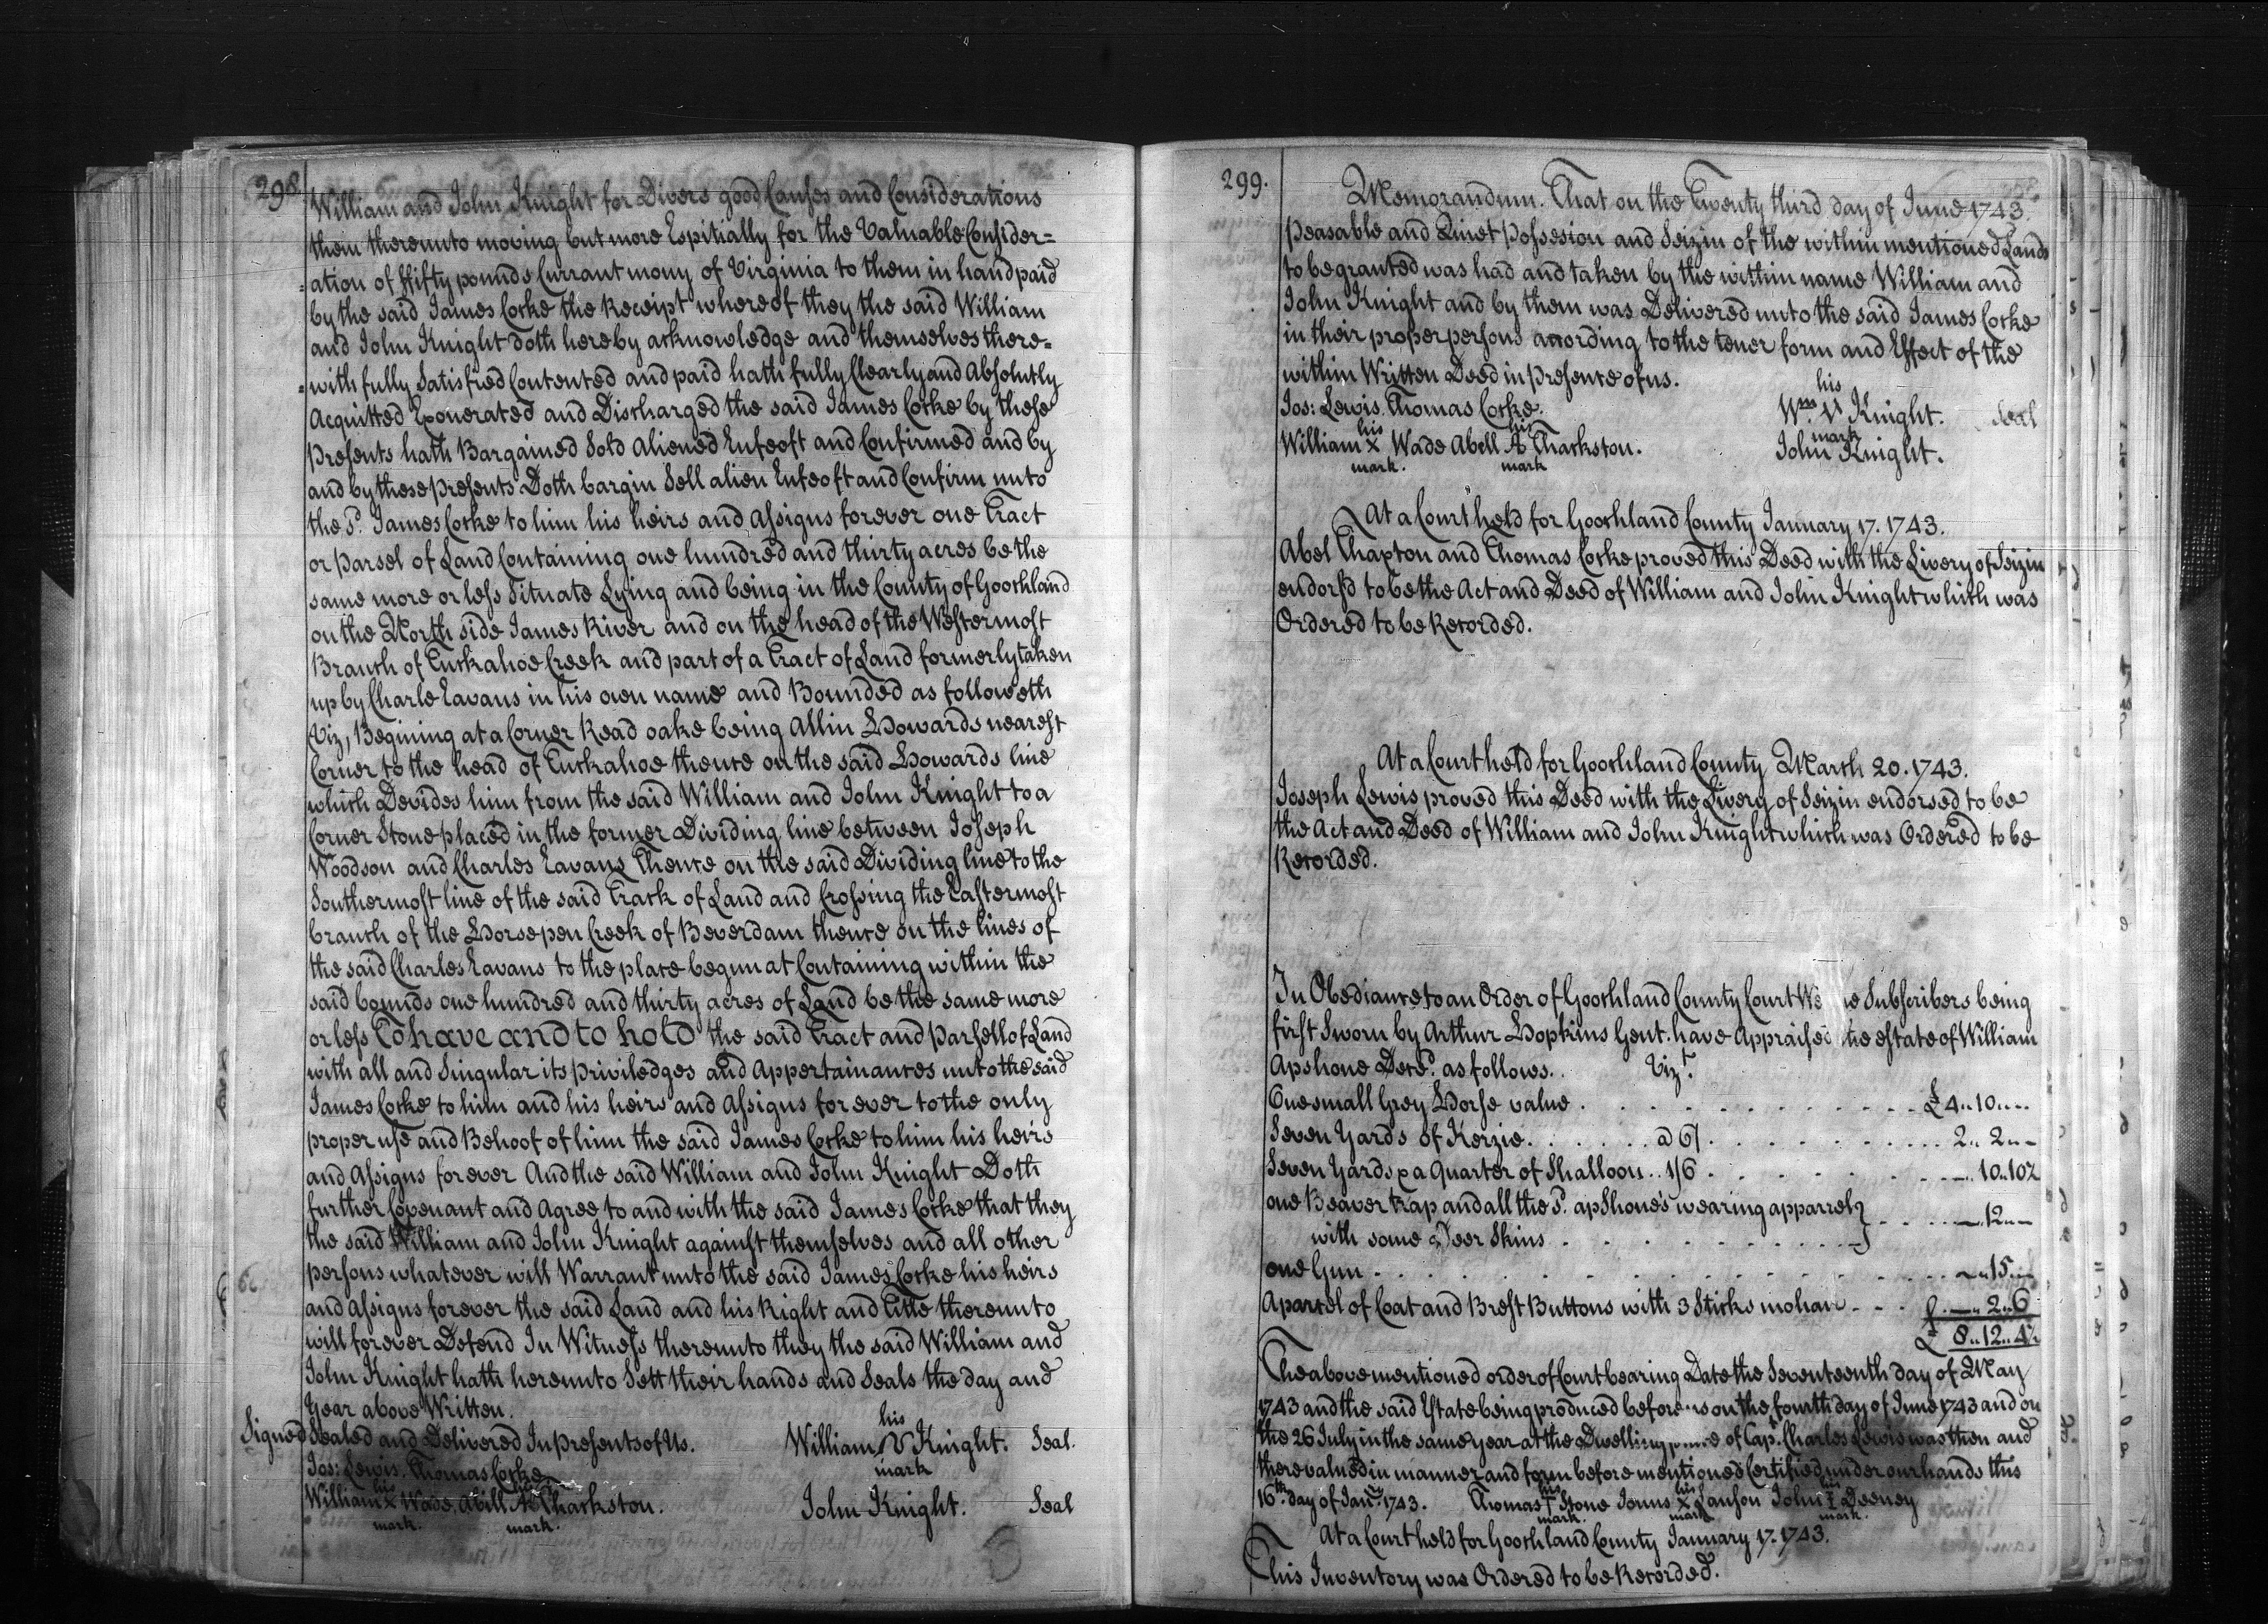 298
William and John Knight for Divers good Causes and Considerations
them thereunto moving but more Espitially for the Valuable Consider=
=ation of ffifty pounds Currant mony of Virginia to them in hand paid
by the said James Cocke the Receipt whereof they the said William
and John Knight doth hereby acknowledge and themselves there=
=with fully Satisfied Contented and paid hath fully Clearly and Absolutly
Acquitted Exonerated and Discharged the said James Cocke by these
presents hath Bargained Sold Aliened Enfeoft and Confirmed and by
and by these presents Doth bargin Sell alien Enfeoft and Confirm unto
the Sd. James Cocke to him his heirs and assigns forever one Tract
or parsel of Land Containing one hundred and thirty acres be the
same more or less Situate Lying and being in the County of Goochland
on the North side James River and on the head of the Westermost
Branch of Tuckahoe Creek and part of a Tract of Land formerly taken
up by Charle Eavans in his own name and Bounded as followeth
Viz, Begining at a Corner Read oake being Allin Howards nearest
Corner to the head of Tuckahoe thence on the said Howards line
which Devides him from the said William and John Knight to a
Corner Stone placed in the former Dividing line between Joseph
Woodson and Charles Eavans Thence on the said Dividing line to the
Southermost line of the said Track of Land and Crossing the Eastermost
branch of the Horsepen Creek of Beverdam thence on the lines of
the said Charles Eavans to the place begun at Containing within the
said bounds one hundred and thirty acres of Land be the same more
or less To have and to hold the said Tract and parsell of Land
with all and Singular its priviledges and Appertainances unto the said
James Cocke to him and his heirs and Assigns for ever to the only
proper use and Behoof of him the said James Cocke to him his heirs
and Assigns forever And the said William and John Knight Doth
further Covenant and Agree to and with the said James Cocke that they
the said William and John Knight against themselves and all other
persons whatever will Warrant unto the said James Cocke his heirs
and assigns forever the said Land and his Right and Title thereunto
will forever Defend In Witness thereunto they the said William and
John Knight hath hereunto Sett their hands and Seals the day and
Year above Written.
Signed Sealed and Delivered In presents of Us.
his
William V Knight. Seal.
mark
Jos: Lewis. Thomas Cocke
his his
William x Wade. Abill A Tharkston.
mark. mark.
John Knight. Seal
299.
Memorandum. That on the Twenty third day of June 1743.
peasable and Quiet possesion and Seizin of the within mentioned Lands
to be granted was had and taken by the within name William and
John Knight and by them was Delivered unto the said James Cocke
in their proper persons acording to the tener form and Effect of the
within Written Deed in presence of us.
Jos: Lewis. Thomas Cocke.
his
Wm. V Knight. Seal
mark
his his
William x Wade Abell A Tharkston.
mark. mark
John Knight.
At a Court held for Goochland County January 17. 1743.
Abel Thaxton and Thomas Cocke proved this Deed with the Livery of Seizin
endors'd to be the Act and Deed of William and John Knight which was
Ordered to be Recorded.
At a Court held for Goochland County March 20. 1743.
Joseph Lewis proved this Deed with the Livery of Seizin endorsed to be
the Act and Deed of William and John Knight which was Ordered to be
Recorded.
In Obediance to an Order of Goochland County Court We the Subscribers being
first Sworn by Arthur Hopkins Gent. have Appraised the estate of William
Apshone Decd. as follows. Vizt.
One small Grey Horse value . . . £4..10..--
Seven Yards of Kerzie . . . @ 6/ . . . 2..2..-
Seven Yards & a Quarter of Shalloon .. 1/6 . . . --..10..10½
one Beaver trap and all the Sd. apShone's wearing apparrel } . . . --..12..-
with some Deer Skins . . .
one Gun . . . --..15..--
A parcel of Coat and Brest Buttons with 3 Sticks mohair . . . £--..2..6
£ 8..12..4½
The above mentioned order of Court bearing Date the Seventeenth day of May
1743 and the said Estate being produced before us on the fourth day of June 1743 and on
the 26 July in the same year at the Dwelling of Capt. Charles Lewis was then and
there valued in manner and form before mentioned Certified under our hands this
16th. day of Jany. 1743.
his his his
Thomas T Stone x Lanson John Deeney
mark. mark. mark.
At a Court held for Goochland County January 17. 1743.
This Inventory was Ordered to be Recorded.